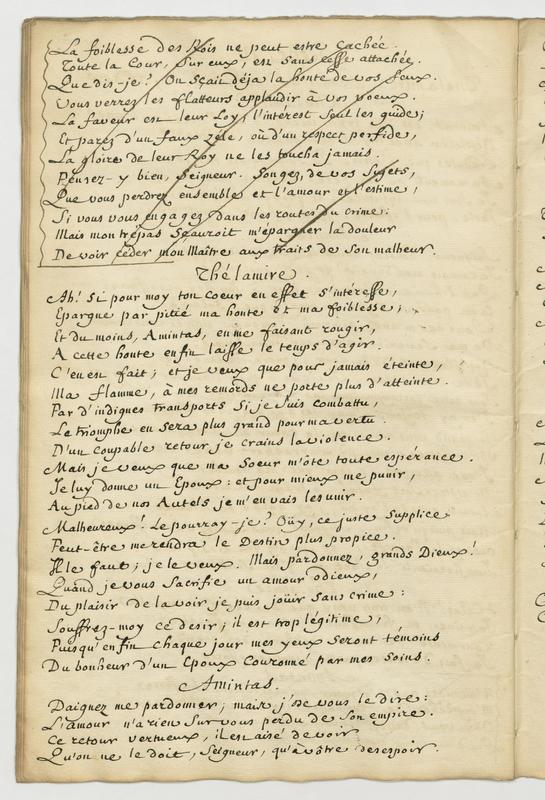 La foiblesse des Rois ne peut estre cachée.
Toute la Cour, sur eux, est sans cesse attachée.
Que dis-je? On sçait déja la honte de vos feux.
Vous verrez les flatteurs applaudir à vos voeux.
La faveur est leur Loy; l'intérest seul les guide;
Et parez d'un faux zéle, où d'un respect perfide,
La gloire de leur Roy ne les toucha jamais.
Pensez-y bien, Seigneur. Songez, de vos Sujets,
Que vous perdrez ensemble et l'amour et l'estime,
Si vous vous engagez dans les routes du crime:
Mais mon trépas sçauroit m'épargner la douleur
De voir céder mon Maître aux traits de son malheur.
Thélamire.
Ah! si pour moy ton coeur en effet s'intéresse,
Epargne par pitié ma honte et ma foiblesse;
Et du moins, Amintas, en me faisant rougir,
A cette honte enfin laisse le temps d'agir.
C'en est fait; et je veux que pour jamais éteinte,
Ma flamme, à mes remords ne porte plus d'atteinte.
Par d'indignes transports si je suis combattu,
Le triomphe en sera plus grand pour ma vertu.
D'un coupable retour je crains la violence.
Mais je veux que ma Soeur m'ôte toute espérance.
Je luy donne un Epoux: et pour mieux me punir,
Au pied de nos Autels je m'en vais les unir.
Malheureux! Le pourray-je? Oüy, ce juste supplice
Peut-être me rendra le Destin plus propice.
Il le faut; je le veux. Mais pardonnez, grands Dieux!
Quand je vous sacrifie un amour odieux,
Du plaisir de la voir je puis joüir sans crime:
Souffrez-moy ce desir; il est trop légitime,
Puisqu'enfin chaque jour mes yeux seront témoins
Du bonheur d'un Epoux couronné par mes soins.
Amintas.
Daignez me pardonner; mais j'ose vous le dire:
L'amour n'a rien sur vous perdu de son empire.
Ce retour vertueux, il est aisé de voir
Qu'on ne le doit, Seigneur, qu'à vôtre desespoir.